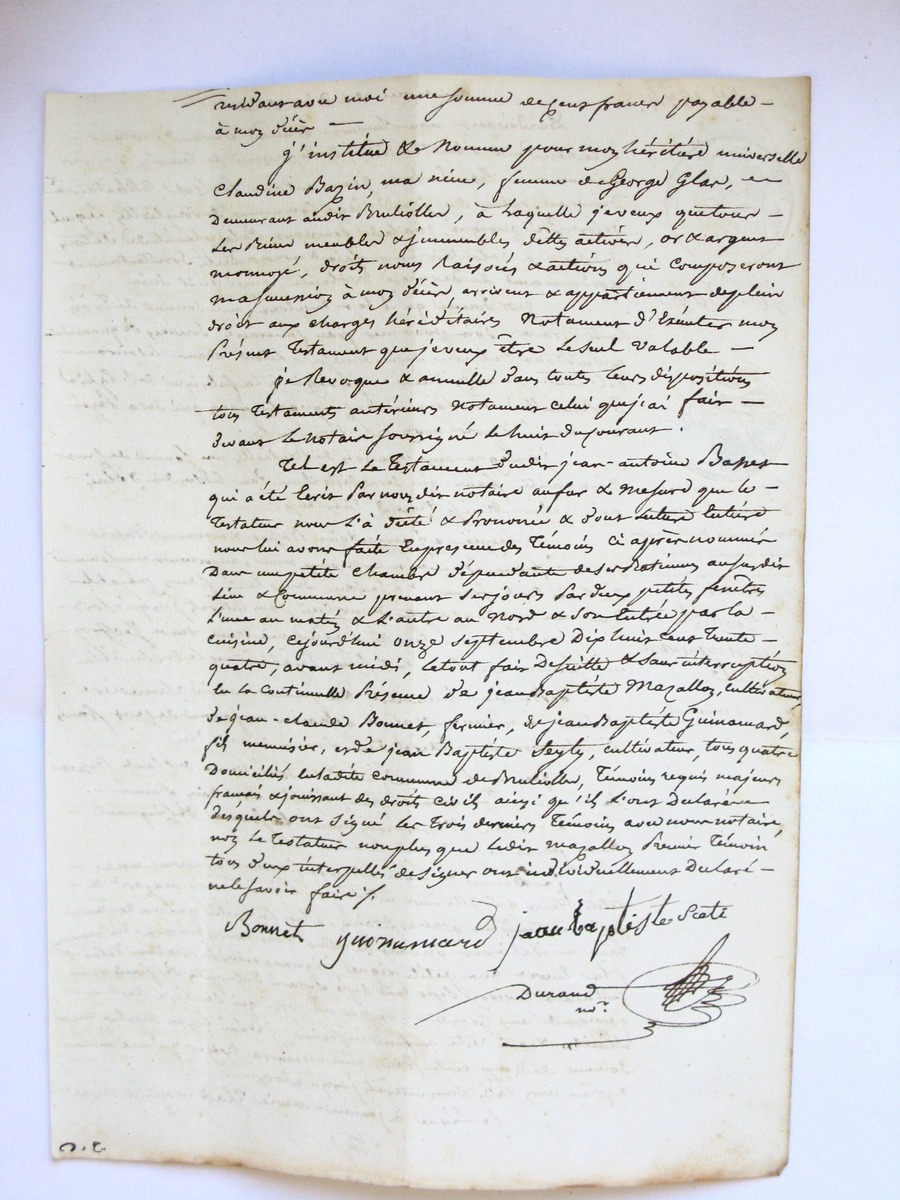 résidant avec moi une somme de cent francs payable –
à mon décès —
j'institue & Nomme pour mon héritière universelle
Claudine Bazin, ma nièce, femme de George Glas,
Demeurant audit Brulioller, à laquelle je veux que tous –
les biens meubles & immeubles dettes actives, or & argent
monnoyé, droits noms Raisons & actions qui Composeront
ma succession à mon décès, arrivent & appartiennent de plein
droit aux charges héréditaires Notament d'Exécuter mon
Présent Testament que je veux être le seul valable —
je Revoque & annulle dans toutes leurs dispositions
tous testaments antérieurs Notament celui que j'ai fait —
devant le Notaire soussigné le huit du courant.
Tel est le Testament dudit jean-antoine Basset
qui a été Ecrit Par nous dit notaire au fur & mesure que le –
Testateur nous l'a dicté & Prononcé & dont lecture Entière
nous lui avons faite En presence des Témoins Ci après nommés
Dans une petite Chambre dépendante de ses Batiments au susdit
Lieu & Commune prenant ses jours Par deux petites fenêtres
L'une au matin & L'autre au Nord & son Entrée par la –
cuisine, cejourd'hui onze septembre Dix huit cent trente –
quatre, avant midi, le tout fait De suitte & sans interruption
En la Continuelle Présence de jean Baptiste Mazallon, cultivateur,
de jean-claude Bonnet, fermier, de jean Baptiste Guinamard,
fils menuisier, et de jean Baptiste Seyty, cultivateur, tous quatre
Domiciliés En ladite commune de Brulliolle, Témoins requis majeurs
français & jouissant des droits civils ainsi qu'ils l'ont Déclaré
desquels ont signé les trois derniers Témoins avec nous notaire,
non le Testateur non plus que ledit Mazallon Premier Témoin
tous deux interpellés de signer ont individuellement Declaré –
ne le savoir faire ./.
Bonnet guinamard jean baptiste Seeti
Durand
no.re